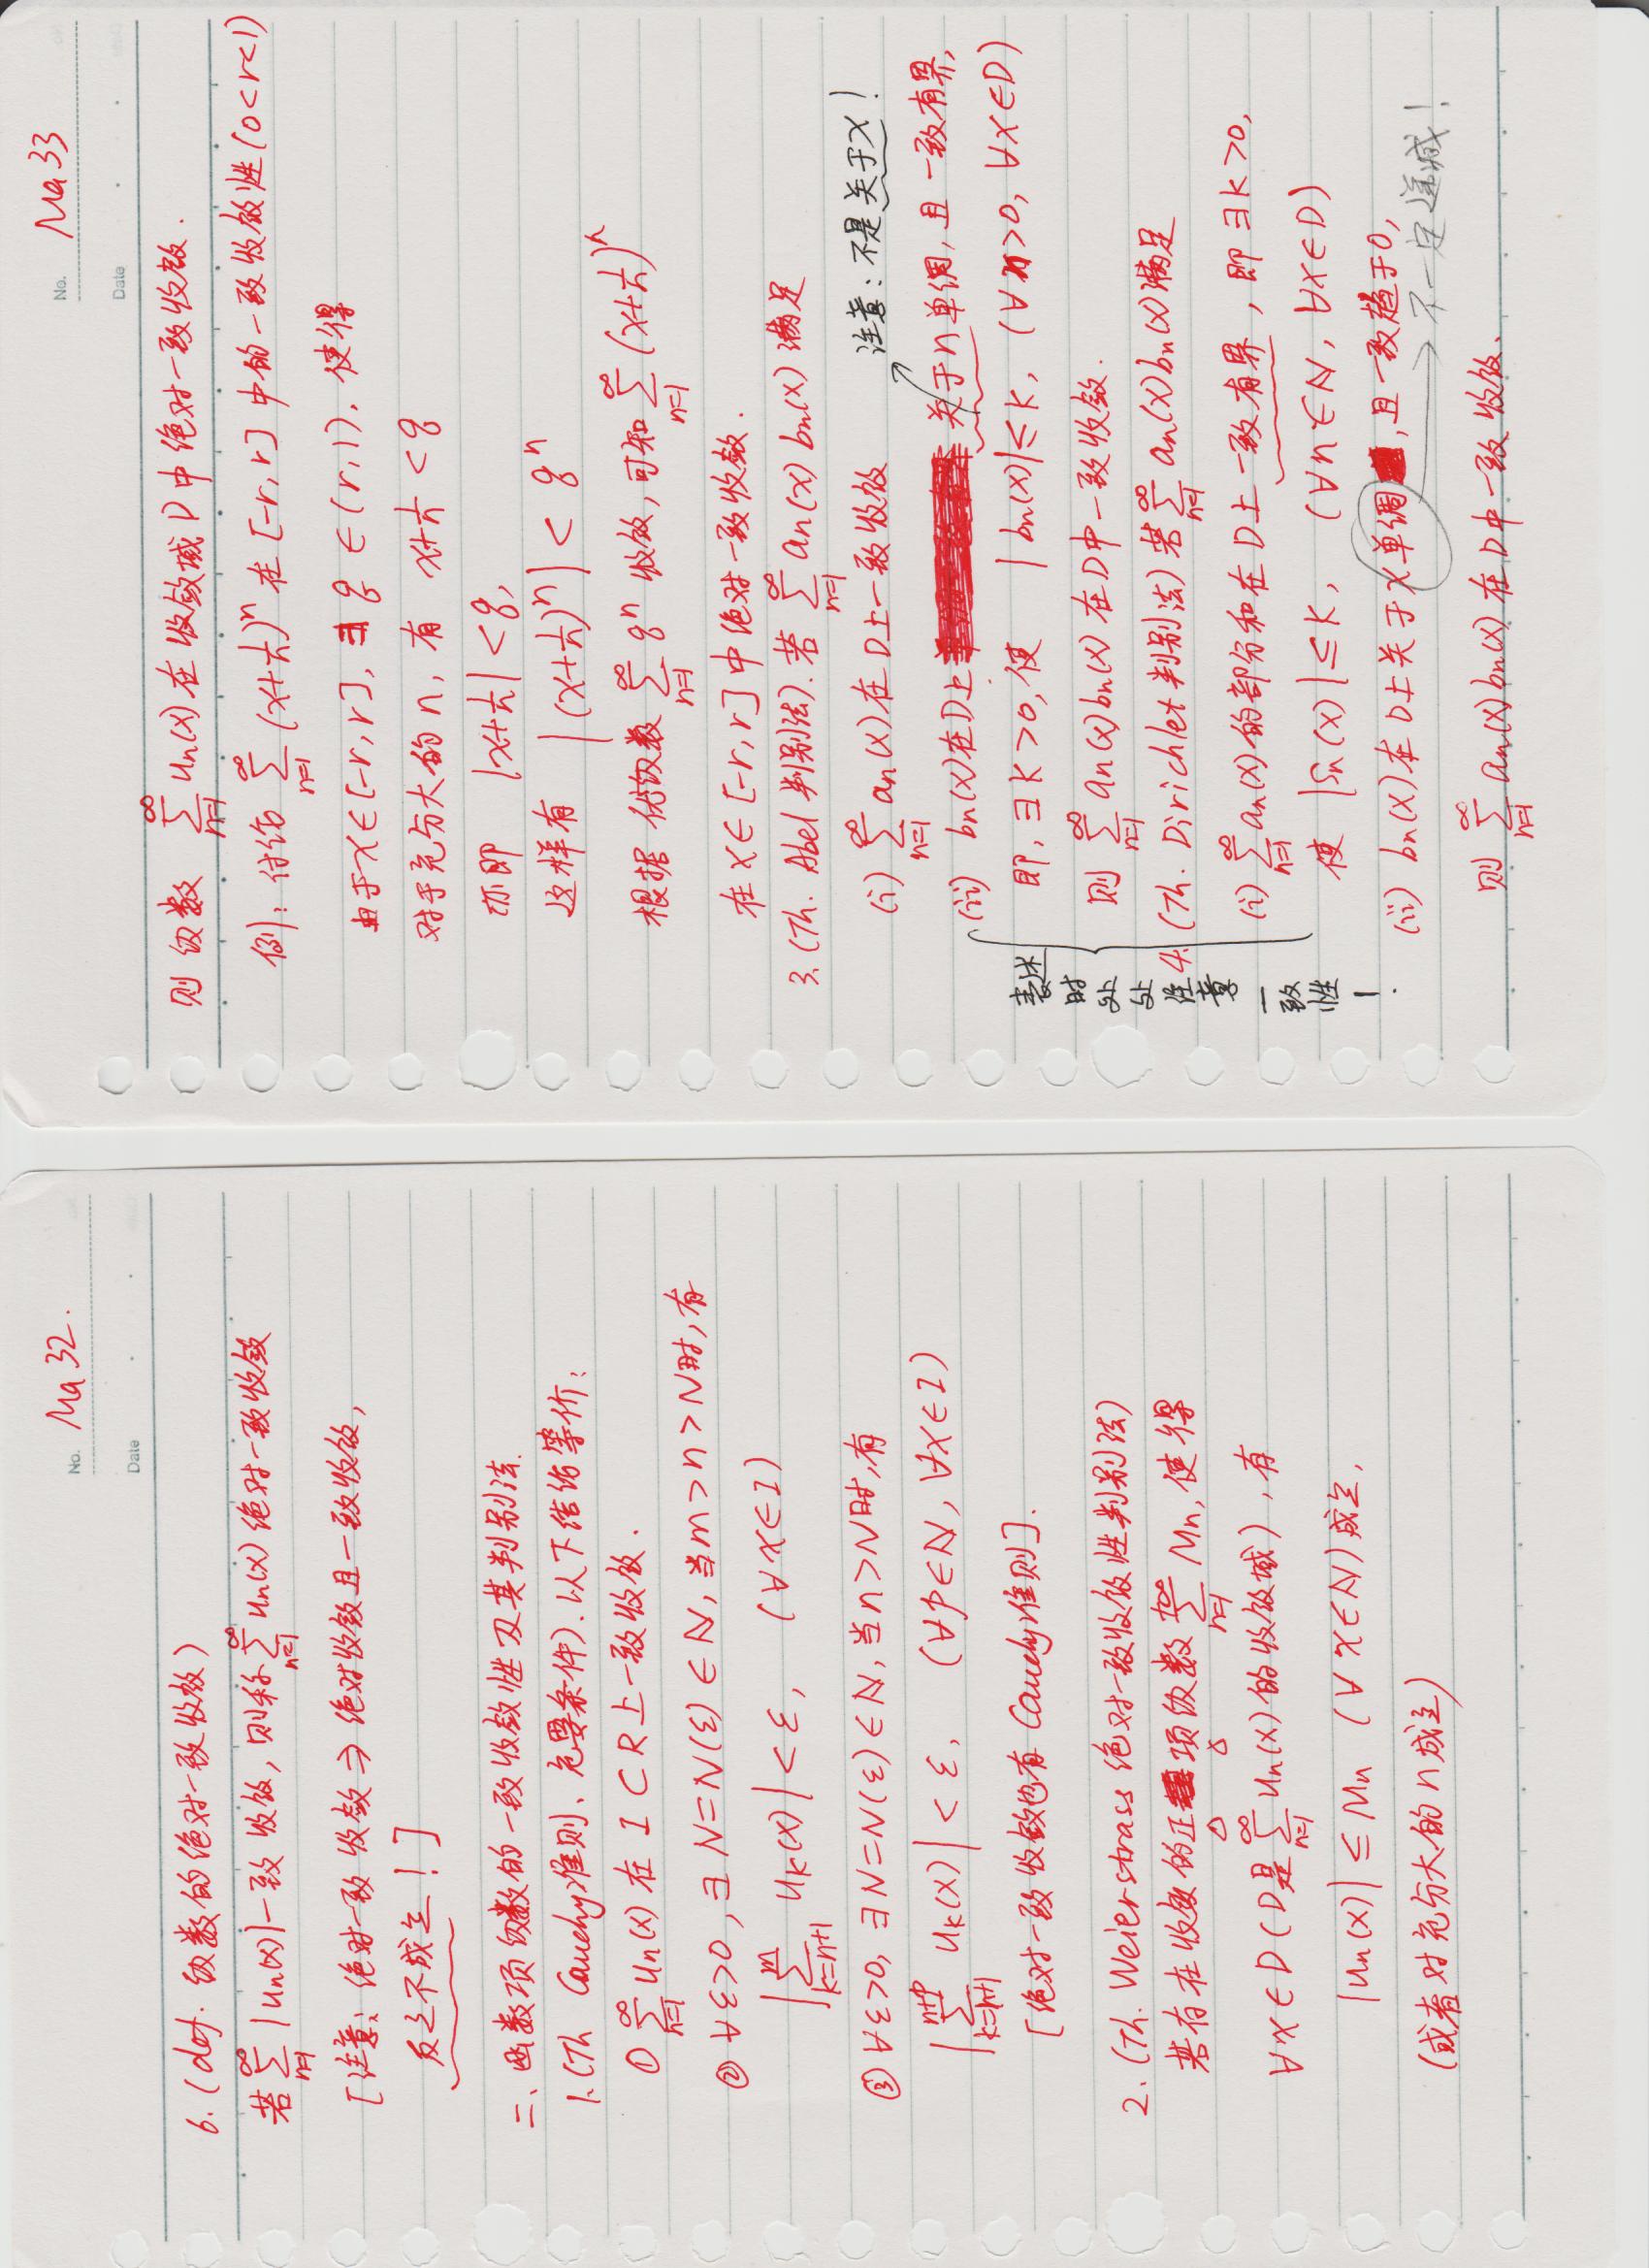 No. Ma 32.
Date
6. (def. 级数的绝对一致收敛)
若 $\sum_{n=1}^{\infty} |u_n(x)|$ 一致收敛, 则称 $\sum_{n=1}^{\infty} u_n(x)$ 绝对一致收敛
[注意: 绝对一致收敛 ⇒ 绝对收敛且一致收敛,
反之不成立! ]
二、函数项级数的一致收敛性及其判别法.
1. (Th Cauchy准则、充要条件). 以下结论等价:
① $\sum_{n=1}^{\infty} u_n(x)$ 在 I ⊂ R 上一致收敛.
② ∀ε>0, ∃ N=N(ε) ∈ ℕ, 当m>n>N时, 有
$|\sum_{k=n+1}^{m} u_k(x)| < ε$, (∀x∈I)
③ ∀ε>0, ∃N=N(ε)∈ℕ, 当n>N时, 有
$|\sum_{k=n+1}^{n+p} u_k(x)| < ε$, (∀p∈ℕ, ∀x∈I)
[绝对一致收敛也有 Cauchy准则].
2. (Th. Weierstrass 绝对一致收敛性判别法)
若存在收敛的正项级数 $\sum_{n=1}^{+\infty} M_n$, 使得
∀x∈D (D是 $\sum_{n=1}^{\infty} u_n(x)$ 的收敛域), 有
|u_n(x)| ≤ M_n (∀x∈ℕ) 成立,
(或者对充分大的n成立)
No. Ma 33
Date
则级数 $\sum_{n=1}^{\infty} u_n(x)$ 在收敛域D中绝对一致收敛.
例: 讨论 $\sum_{n=1}^{\infty} (x+\frac{1}{n})^n$ 在 [-r, r] 中的一致收敛性 (0<r<1)
由于 x∈[-r, r], ∃ q ∈(r, 1), 使得
对于充分大的 n, 有 $x+\frac{1}{n} < q$
亦即 $|x+\frac{1}{n}| < q$,
这样有 $|(x+\frac{1}{n})^n| < q^n$
根据优级数 $\sum_{n=1}^{\infty} q^n$ 收敛, 可知 $\sum_{n=1}^{\infty} (x+\frac{1}{n})^n$
在 x∈[-r, r] 中绝对一致收敛.
3. (Th. Abel 判别法). 若 $\sum_{n=1}^{\infty} a_n(x) b_n(x)$ 满足
(i) $\sum_{n=1}^{\infty} a_n(x)$ 在 D上一致收敛
注意: 不是关于x!
(ii) b_n(x)在D上 关于n单调, 且一致有界,
即, ∃K>0, 使 |b_n(x)|≤K, (∀n>0, ∀x∈D)
则 $\sum_{n=1}^{\infty} a_n(x)b_n(x)$ 在D中一致收敛.
表述时处处注意一致性!
4. (Th. Dirichlet 判别法) 若 $\sum_{n=1}^{\infty} a_n(x)b_n(x)$ 满足
(i) $\sum_{n=1}^{\infty} a_n(x)$ 的部分和在 D上一致有界, 即∃K>0,
使 |S_n(x)|≤K, (∀n∈ℕ, ∀x∈D)
(ii) b_n(x)在D上关于x单调, 且一致趋于0,
不一定递减!
则 $\sum_{n=1}^{\infty} a_n(x)b_n(x)$ 在D中一致收敛.